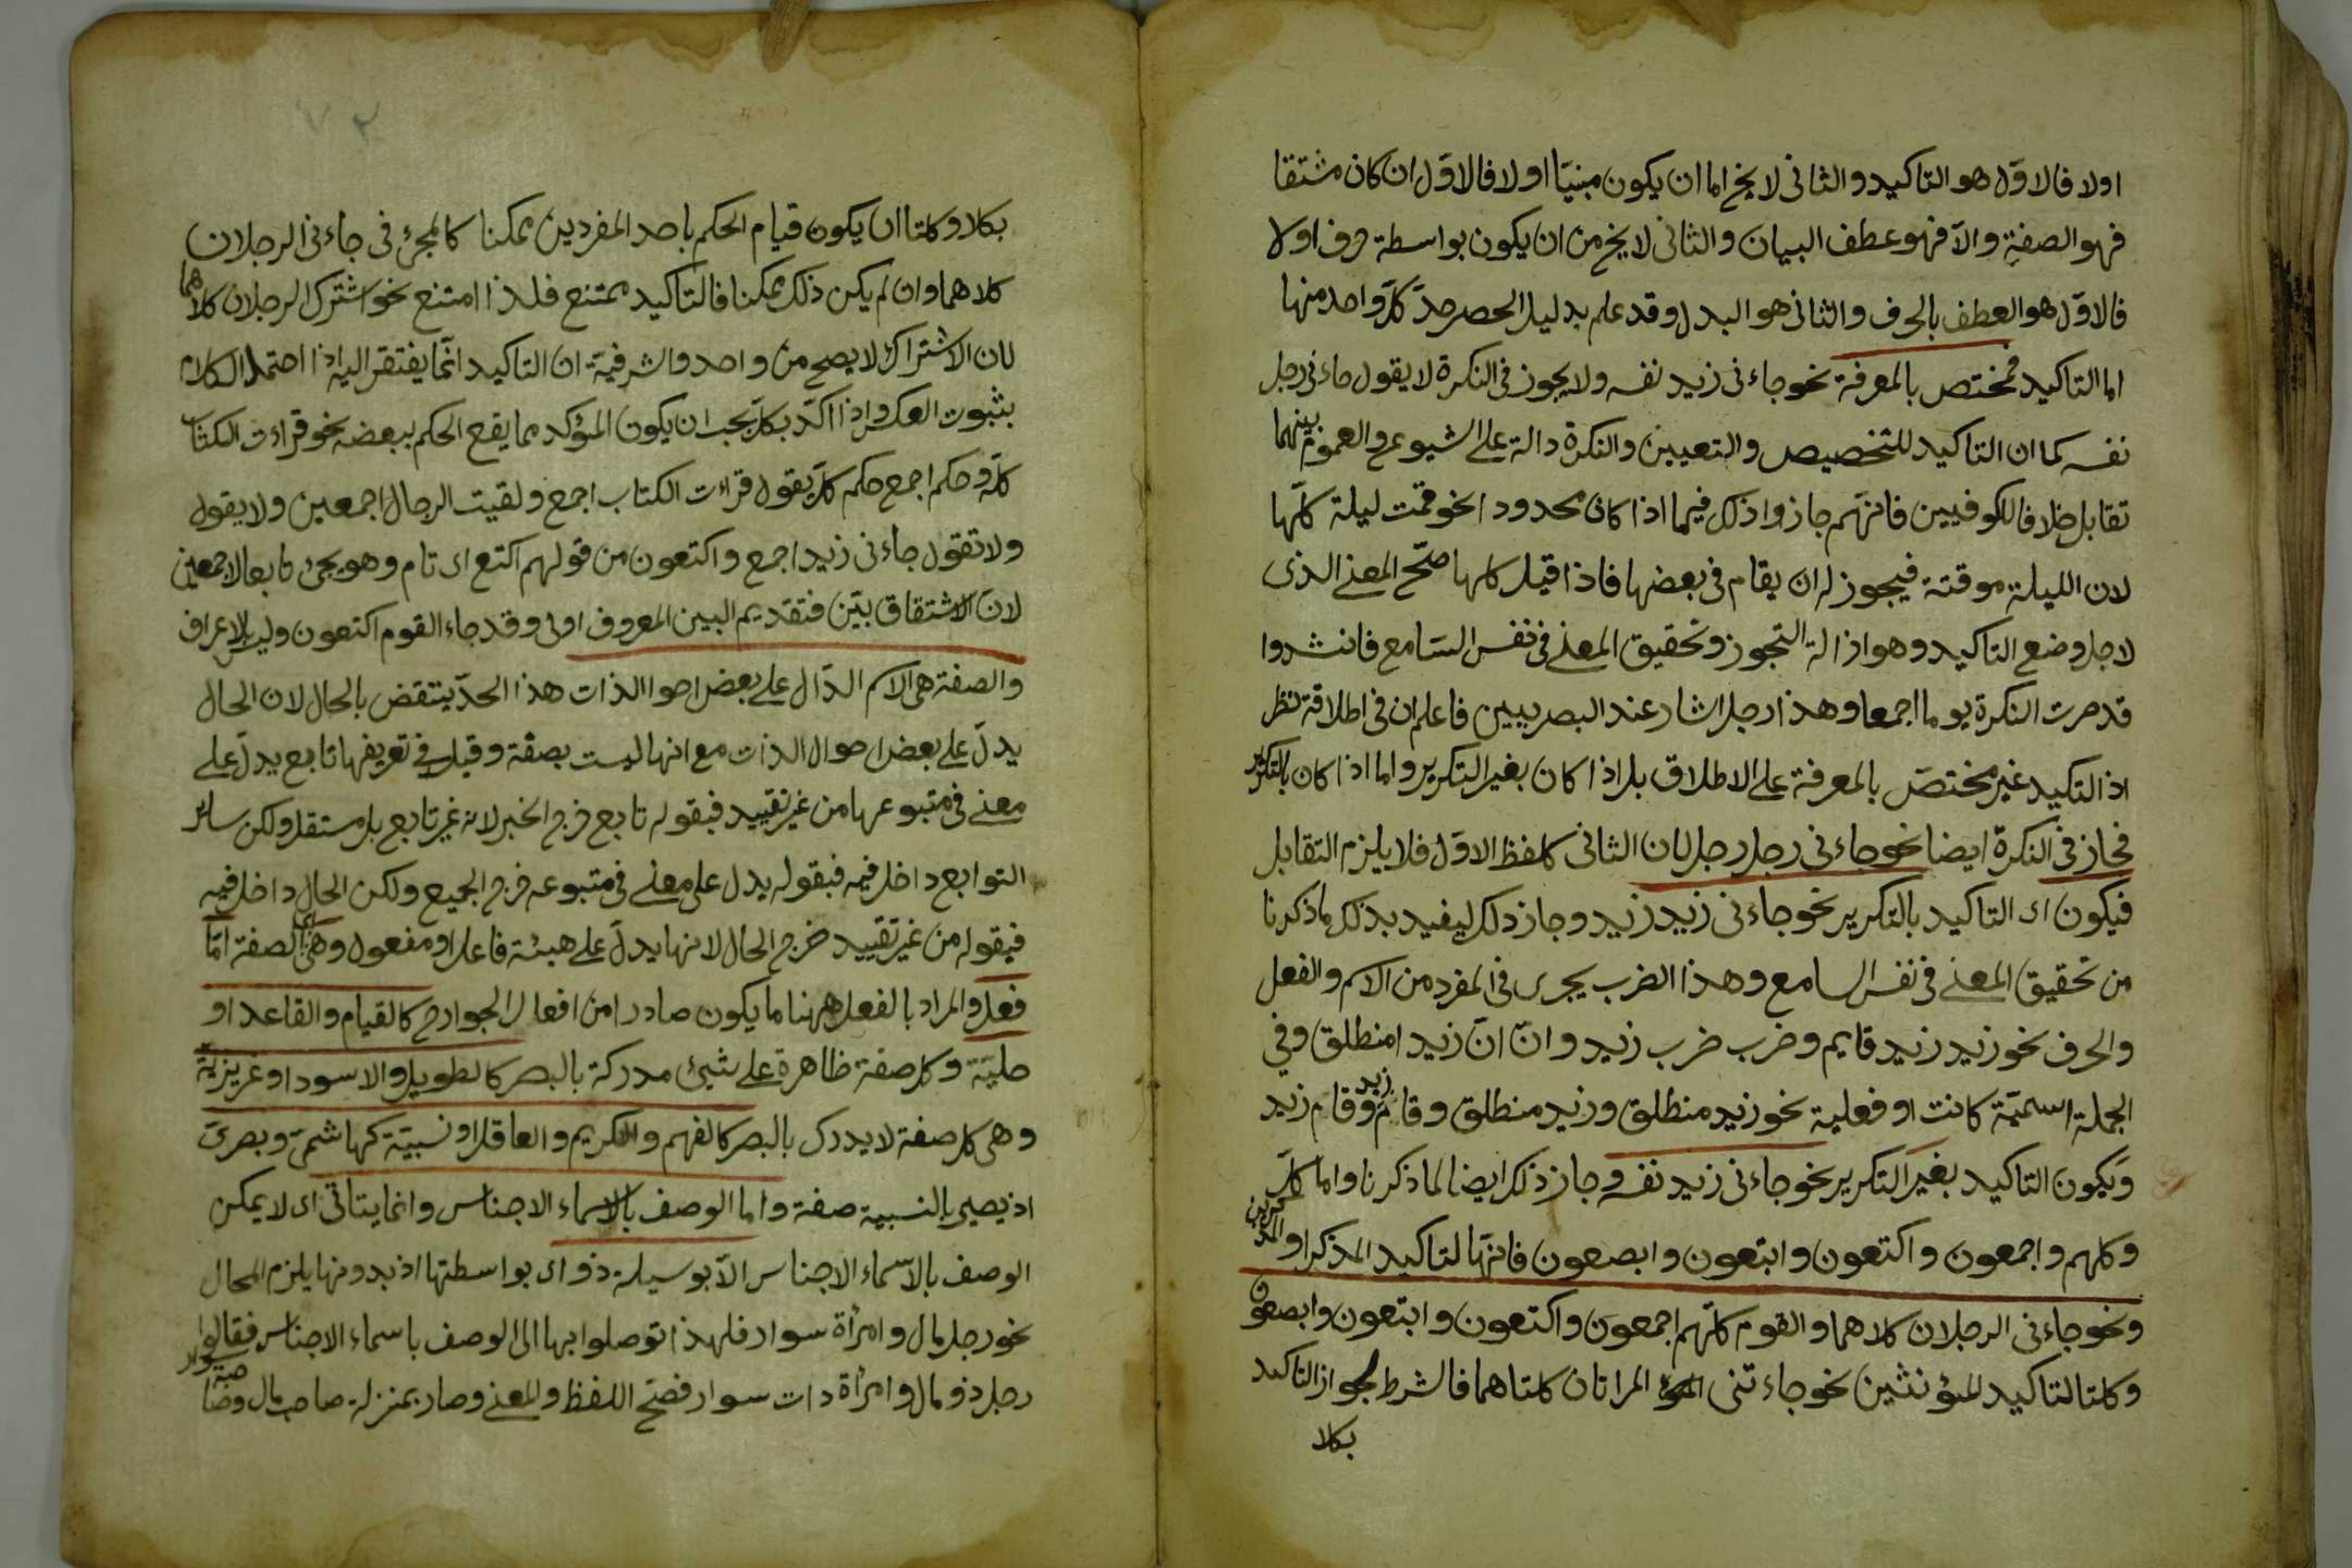 اولا فالاوّل هو التاكيد والثانى لا يخ اما ان يكون مبنيّا اولا فالاوّل ان كان مشتقا
فهو الصفة والّا فهو عطف البيان والثانى لا يخ من ان يكون بواسطة حرف اولا
فالاوّل هو العطف بالحرف والثانى هو البدل وقد علم بدليل الحصر حدّ كلّ واحد منها
اما التاكيد فمختص بالمعرفة نحو جاءنى زيد نفسه ولا يجوز فى النكرة لا يقول جاءنى رجل
نفسه كما ان التاكيد للتخصيص والتعيين والنكرة دالة على الشيوع والعموم بينهما
تقابل خلافا للكوفيين فانهّم جازوا ذلك فيما اذا كان محدودا نحو قمت ليلة كلّها
لان الليلة موقتة فيجوز له ان يقام فى بعضها فاذا قيل كلها صحّ المعنى الذى
لاجل وضع التاكيد وهو ازالة التجوز وتحقيق المعنى فى نفس السّامع فانشدوا
قد صرت النكرة يوما اجمعا وهذا رجل اشار عند البصريين فاعلم ان فى اطلاقه نظر
اذ التكيد غير مختصّ بالمعرفة على الاطلاق بل اذا كان بغير التكرير واما اذا كان بالتكرير
فجاز فى النكرة ايضا نحو جاءنى رجل رجل لان الثانى كلفظ الاوّل فلا يلزم التقابل
فيكون اى التاكيد بالتكرير نحو جاءنى زيد زيد وجاز ذلك ليفيد بذلك ماذكرنا
من تحقيق المعنى فى نفس السامع وهذا الضرب يجرى فى المفرد من الاسم والفعل
والحرف نحو زيد زيد قايم وضرب ضرب زيد وانّ انّ زيدا منطلق وفى
الجملة اسميّة كانت او فعلية نحو زيد منطلق وزيد منطلق وقام زيد وقام زيد
ويكون التاكيد بغير التكرير نحو جاءنى زيد نفسه وجاز ذلك ايضا لما ذكرنا واما كلّ
وكلهم واجمعون واكتعون وابتعون وابصعون فانهّا لتاكيد المذكر او المذكرين
ونحو جاءنى الرجلان كلاهما والقوم كلّهم اجمعون واكتعون وابتعون وابصعون
وكلتا لتاكيد المؤنثين نحو جاءتنى المراتان كلتاهما فالشرط لجواز التاكيد
بكلا
بكلا وكلتا ان يكون قيام الحكم باحد المفردين ممكنا كالمجئ فى جاءنى الرجلان
كلاهما وان لم يكن ذلك ممكنا فالتاكيد ممتنع فلذا امتنع نحو اشترك الرجلان كلاهما
لان الاشتراك لا يصح من واحد والشرفيّة ان التاكيد انّما يفتقر اليه اذا احتمل الكلام
بثبوت العكس واذا اكدّ بكلّ يجب ان يكون المؤكد مما يقع الحكم ببعضه نحو قراءت الكتاب
كلّه وحكم اجمع حكم كلّ يقول قراءت الكتاب اجمع ولقيت الرجال اجمعين ولا يقول
ولا تقول جاءنى زيد اجمع واكتعون من قولهم اكتع اى تام وهو يجئ تابعا لاجمعين
لانّ الاشتقاق بيّن فتقديم البين المعروف اولى وقد جاء القوم اكتعون وليس بالاعراف
والصفة هى الاسم الدّال على بعض احوا الذات هذا الحدّ ينتقض بالحال لان الحال
يدلّ على بعض احوال الذات مع انها ليست بصفة وقيل فى تعريفها تابع يدلّ على
معنى فى متبوعها من غير تقييد فبقوله تابع خرج الخبر لانه غير تابع بل مستقل ولكن سائر
التوابع داخل فيه فبقوله يدل على معنى فى متبوعه خرج الجميع ولكن الحال داخل فيه
فبقوله من غير تقييد خرج الحال لانها يدلّ على هيئة فاعل او مفعول وهى اى الصفة امّا
فعل والمراد بالفعل ههنا ما يكون صادرا من افعال الجوارح كالقيام والقاعد او
حليّة وكل صفة ظاهرة على شيئ مدركة بالبصر كالطويل والاسود او غريزيّة
وهى كل صفة لا يدرك بالبصر كالفهم والكريم والعاقل او نسبيّة كهاشمىّ وبصرىّ
اذ يصير بالنسبية صفة واما الوصف بالاسماء الاجناس وانما يتاتّى اى لا يمكن
الوصف بالاسماء الاجناس الّا بوسيلة ذو اى بواسطتها اذ بدونها يلزم المحال
نحو رجل مال وامرأة سوار فلهذا توصلوا بها الى الوصف باسماء الاجناس فقالوا
رجل ذو مال وامرأة ذات سوار فصحّ اللفظ والمعنى وصار بمنزلة صاحب مال وصاحبة سوار